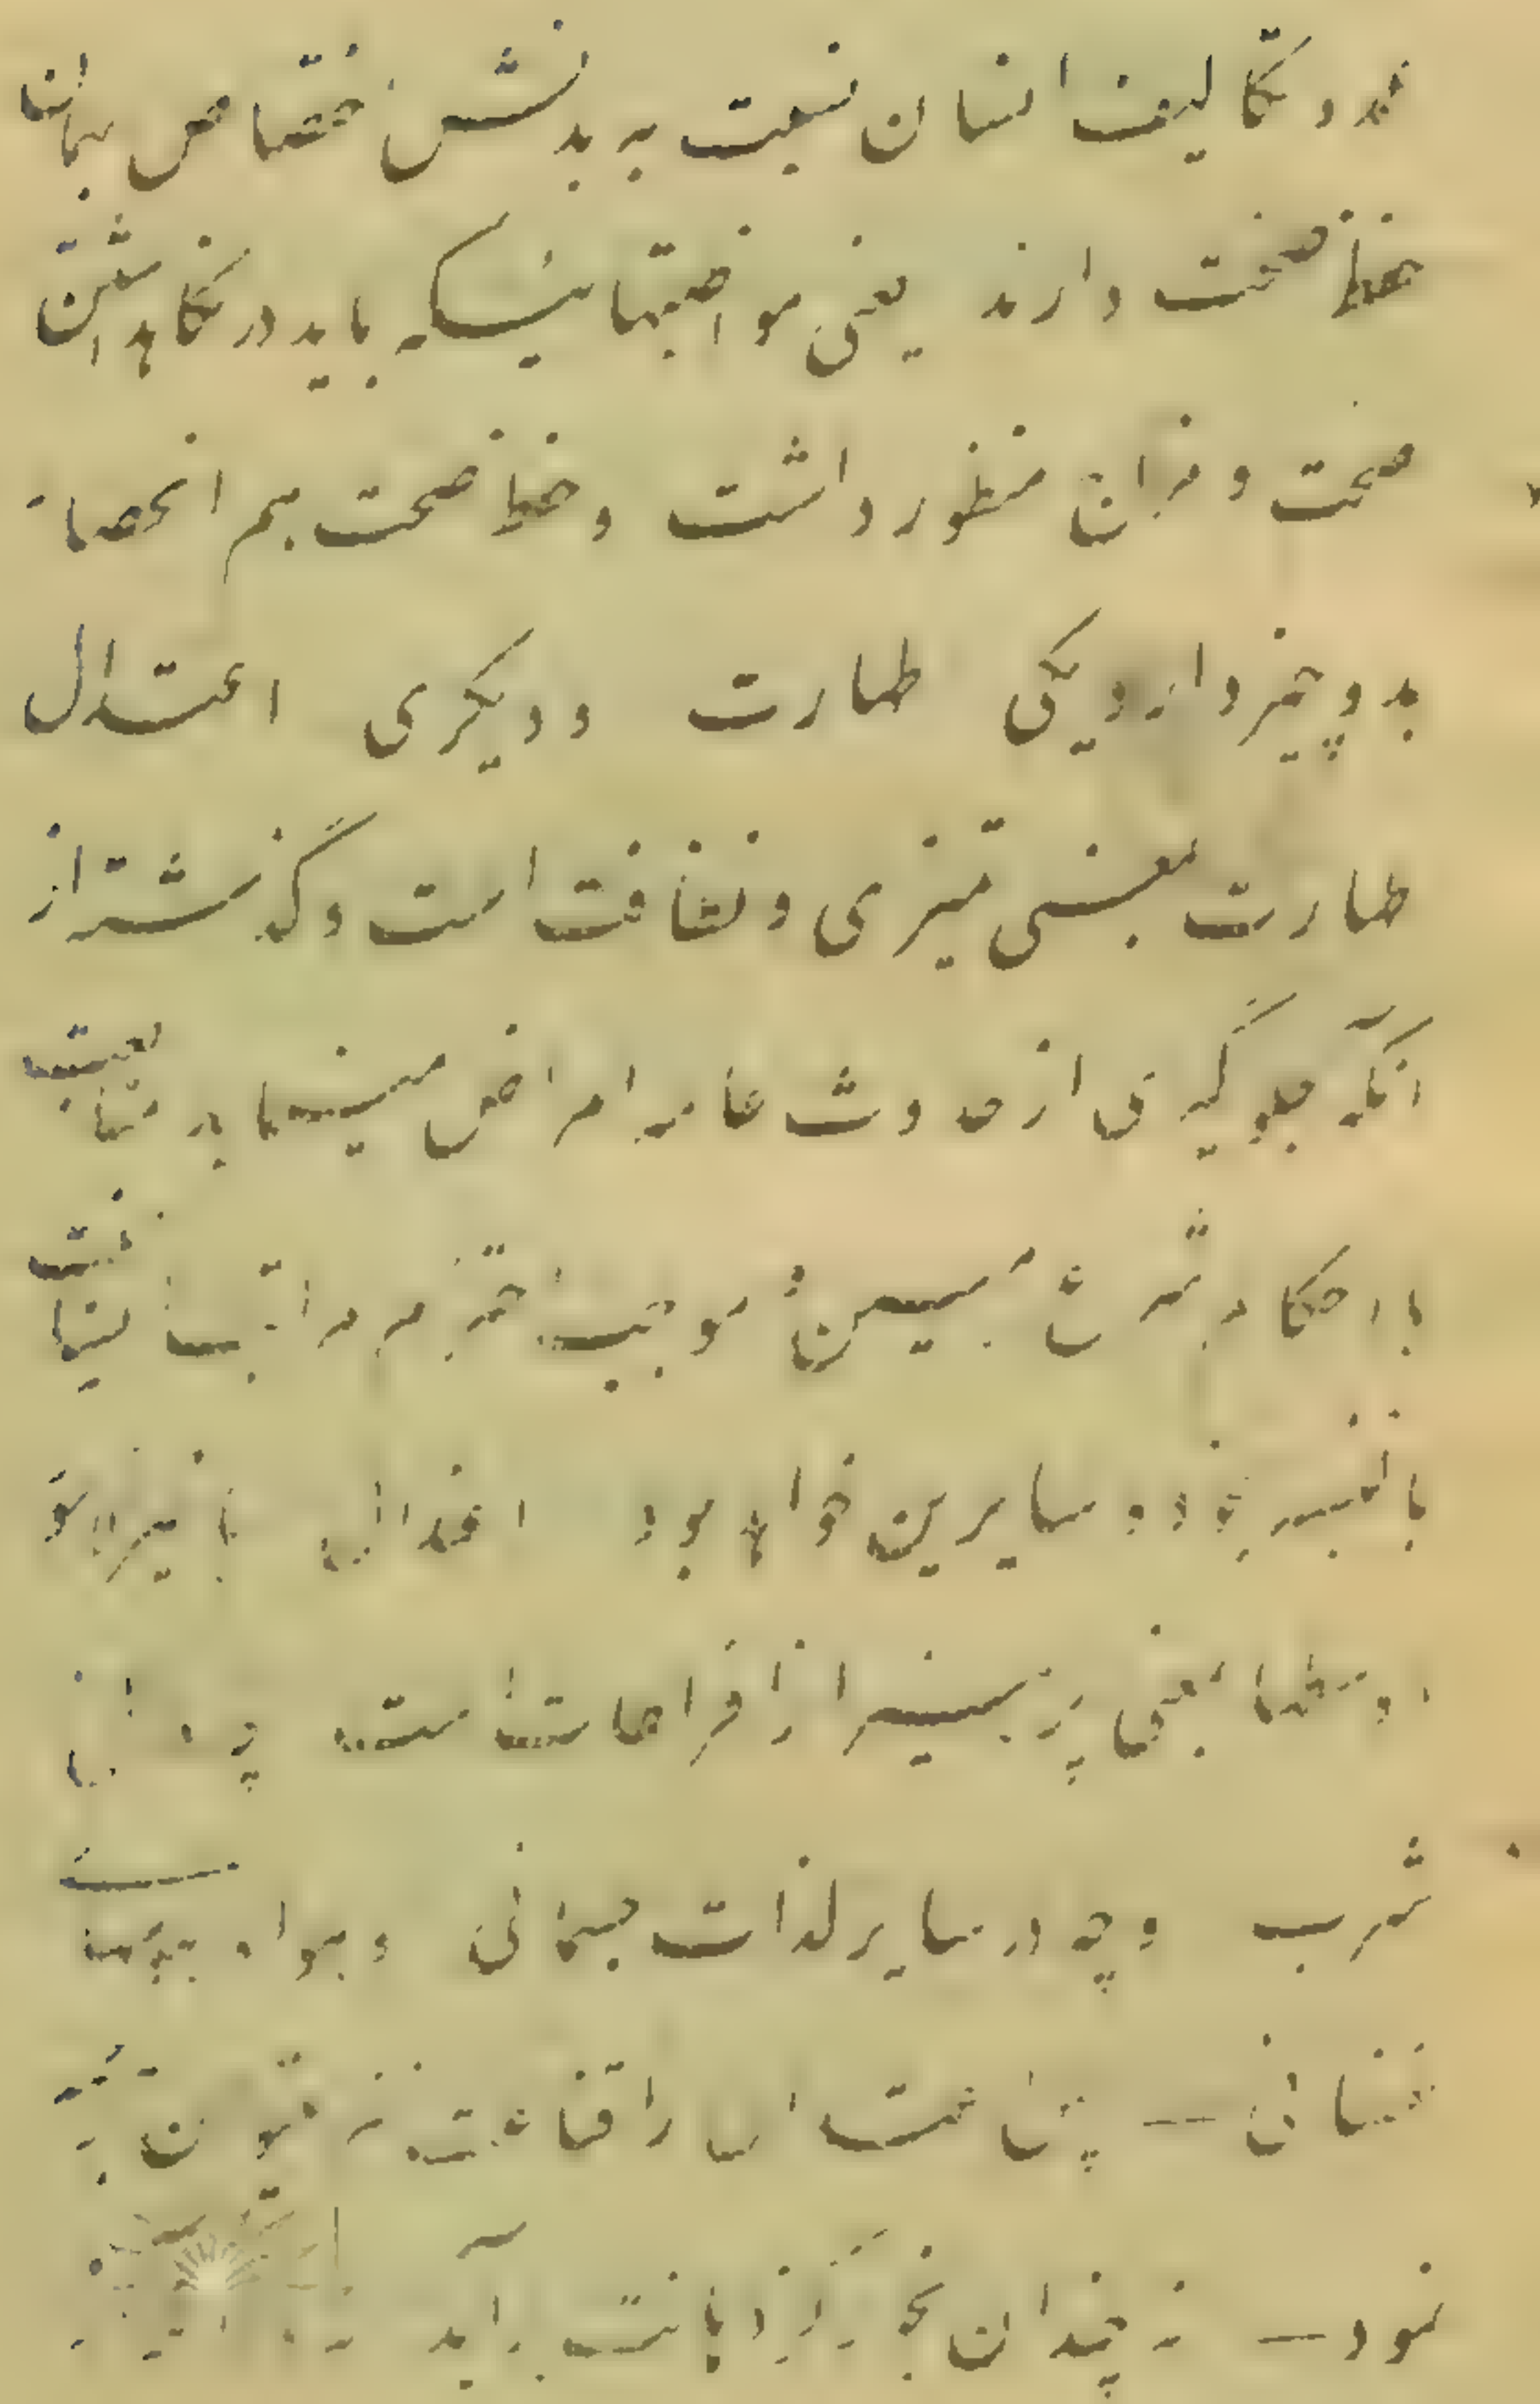 خود و تکالیف انسان نسبت به بدنش اختصاص بهمان
حفظ صحت دارند یعنی مواظبتهائیکه باید در نگاهداشتن
صحت و مزاج منظور داشت و حفظ صحت هم انحصار
بدو چیز دارد یکی طهارت و دیگری اعتدال
طهارت بمعنی تمیزی و نظافت است و گذشته از
آنکه جلوگیری از حدوث عامه امراض مینماید متابعت
باحکام شرع مبین و موجب احترام مراتب انسانیت
بالنسبه بخود و سایرین خواهد بود اعتدال یا خیرالامور
اوسطها یعنی پرهیز از افراط است چه در اکل
شرب و چه در سایر لذات جسمانی و هوا
نفسانی — را قناعت
نمود — نه چندان بخور کز دهانت برآید نه